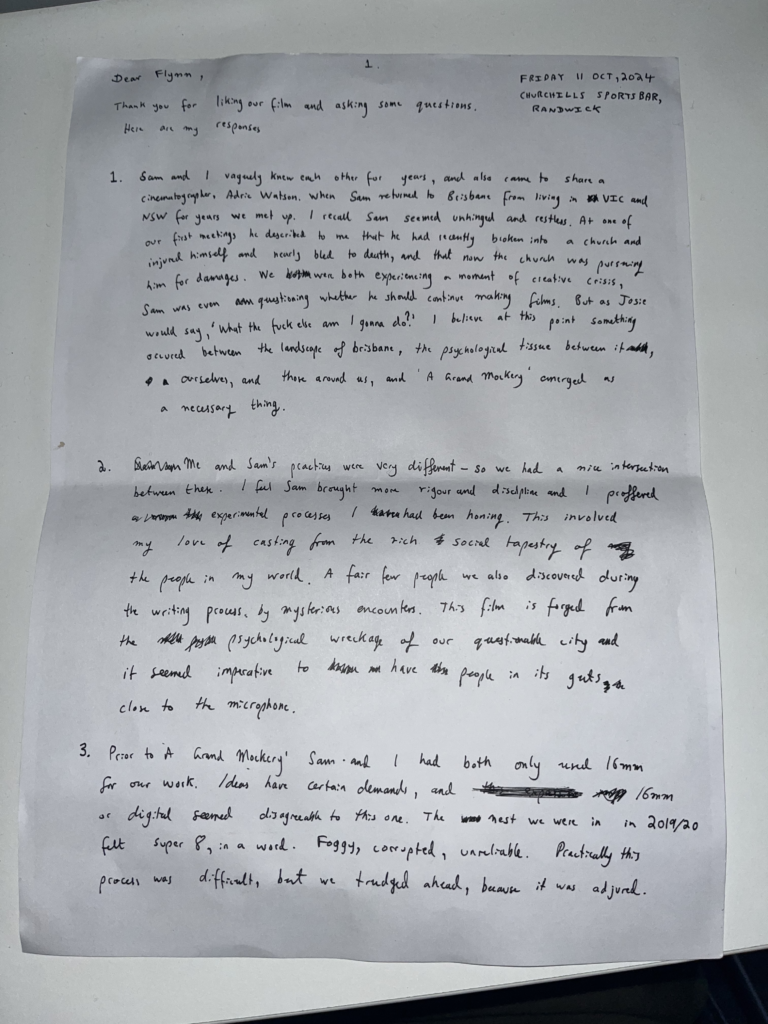 1.
Dear Flynn,
FRIDAY 11 OCT, 2024
CHURCHILLS SPORTSBAR,
RANDWICK
Thank you for liking our film and asking some questions.
Here are my responses
1. Sam and I vaguely knew each other for years, and also came to share a
cinematographer, Adric Watson. When Sam returned to Brisbane from living in VIC and
NSW for years we met up. I recall Sam seemed unhinged and restless. At one of
our first meetings he described to me that he had recently broken into a church and
injured himself and nearly bled to death, and that now the church was pursuing
him for damages. We were both experiencing a moment of creative crisis,
Sam was even questioning whether he should continue making films. But as Josie
would say, 'What the fuck else am I gonna do?' I believe at this point something
occured between the landscape of brisbane, the psychological tissue between it,
ourselves, and those around us, and 'A Grand Mockery' emerged as
a necessary thing.
2. Me and Sam's practices were very different – so we had a nice intersection
between these. I feel Sam brought more rigour and discipline and I proffered
experimental processes I had been honing. This involved
my love of casting from the rich social tapestry of
the people in my world. A fair few people we also discovered during
the writing process, by mysterious encounters. This film is forged from
the psychological wreckage of our questionable city and
it seemed imperative to have people in its guts,
close to the microphone.
3. Prior to 'A Grand Mockery' Sam and I had both only used 16mm
for our work. Ideas have certain demands, and 16mm
or digital seemed disagreeable to this one. The nest we were in in 2019/20
felt super 8, in a word. Foggy, corrupted, unreliable. Practically this
process was difficult, but we trudged ahead, because it was adjured.